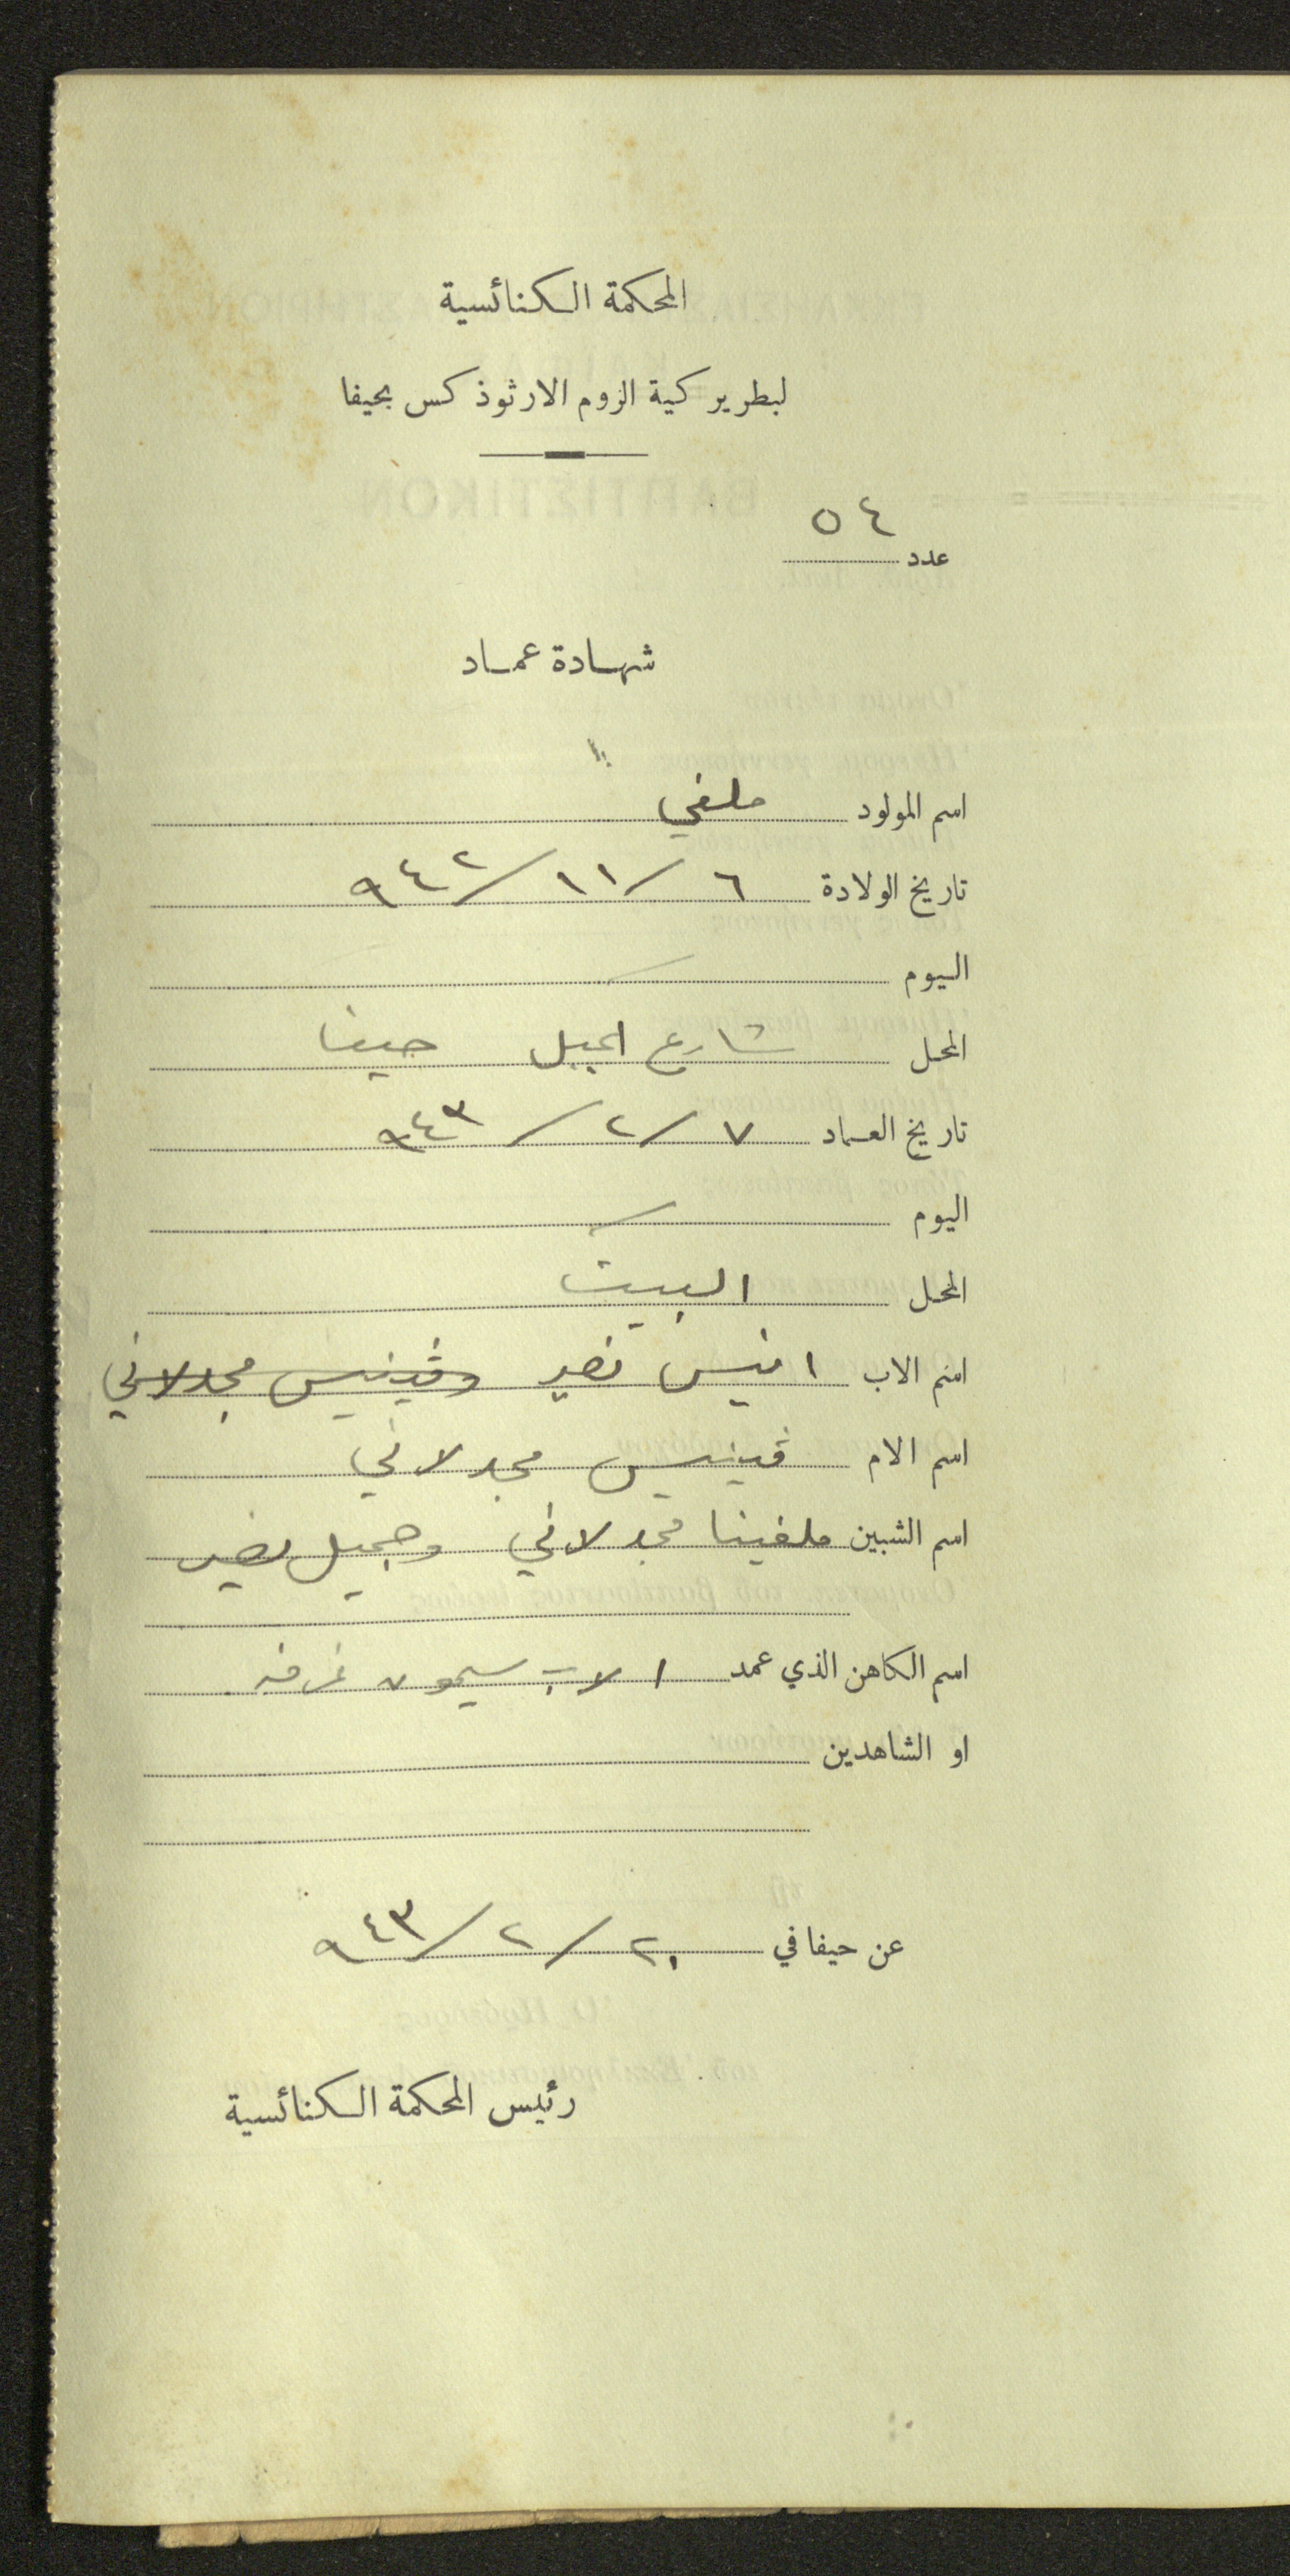 المحكمة الكنائسية
لبطريركية الروم الارثوذكس بحيفا
عدد ٥٤
شهادة عماد
اسم المولود ملفي
تاريخ الولادة ٦/١١/٩٤٢
اليوم
المحل شارع الجبل حيفا
تاريخ العماد ٧/٢/٩٤٣
اليوم
المحل البيت
اسم الاب انيس نصير وڤينيس مجدلاني
اسم الام ڤينيس مجدلاني
اسم الشبين ملفينا مجدلاني وجميل نصير
اسم الكاهن الذي عمد الاب سيمون
او الشاهدين
عن حيفا في ٢٠/٢/٩٤٣
رئيس المحكمة الكنائسية